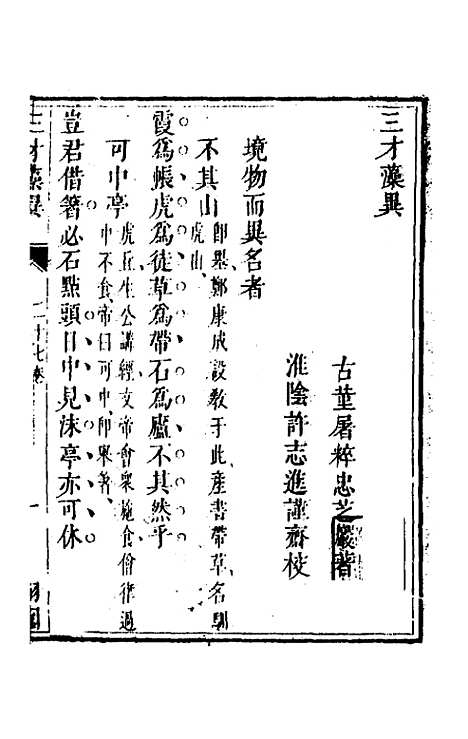 三才藻異
古堇屠粹忠芝巖著
淮陰許志進謹齋校
境物而異名者
不其山即墨鄭康成設教于此產書帶草名馴
虎山
霞爲帳虎爲徒草爲帶石爲廬不其然乎
可中亭虎丘生公講經文帝會衆施食僧律過
中不食帝曰可中卽舉箸
豈君借箸必石點頭日中見沫亭亦可休
三才藻異
二十七卷
一